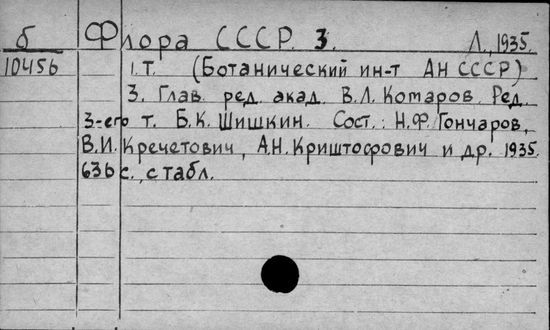 б Флора СССР. 3. Л., 1935.
10456 1. т. (Ботанический ин-т АН СССР)
3. Глав. ред. акад. В.Л. Комаров. Ред.
3-его т. Б.К. Шишкин. Сост.: Н.Ф. Гончаров,
В.И. Кречетович, А.Н. Криштофович и др. 1935.
636 с., с табл.